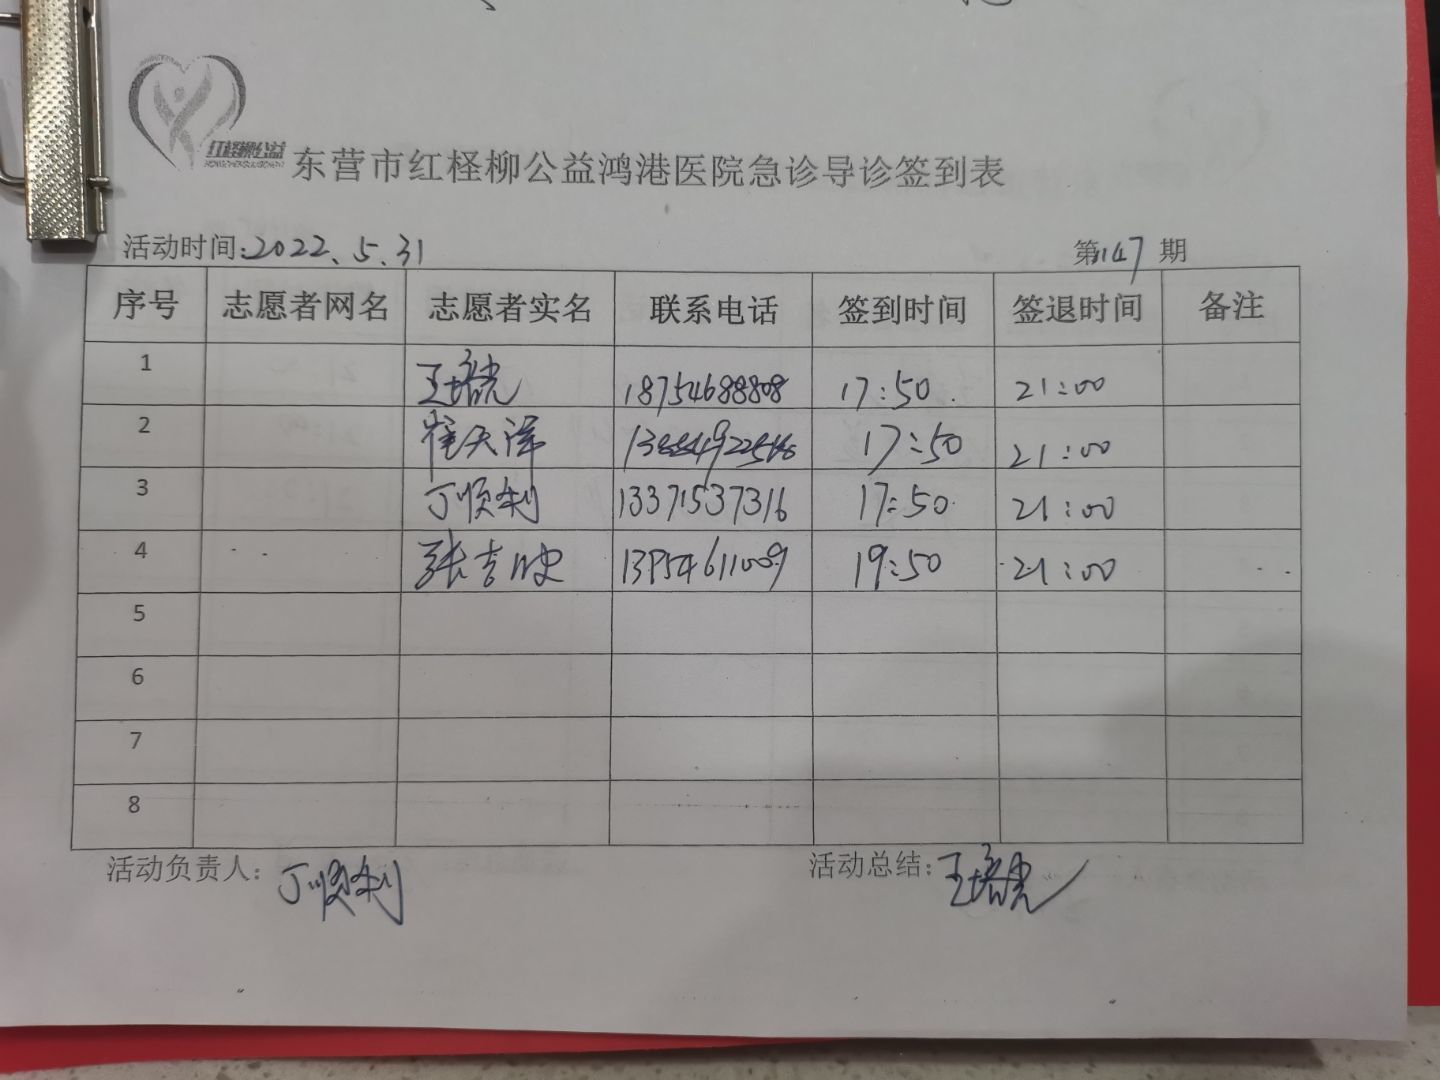 红柽柳公益
东营市红柽柳公益鸿港医院急诊导诊签到表
活动时间:2022.5.31 第147期
序号 志愿者网名 志愿者实名 联系电话 签到时间 签退时间 备注
1 王培光 18754688808 17:50 21:00
2 崔天洋 17:50 21:00
3 丁顺利 13371537316 17:50 21:00
4 张吉 13954611009 19:50 21:00
5
6
7
8
活动负责人：丁顺利 活动总结：王培光